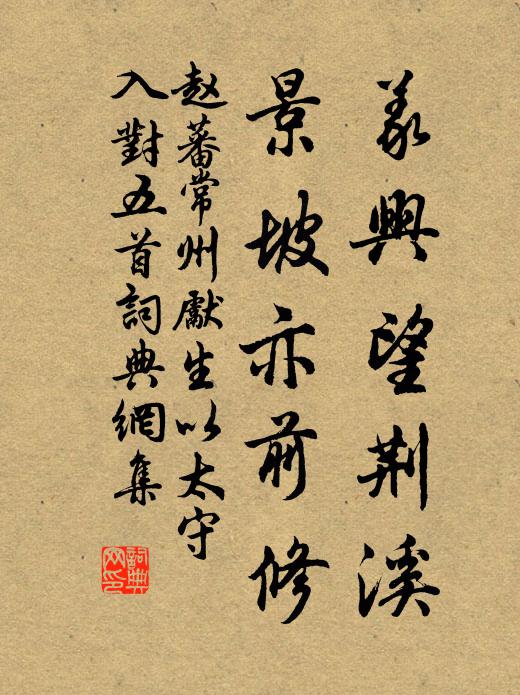 義興望荆溪
景坡亦前修
赵蕃常州獻生以太守
入對五首詞典網集
詞典网印